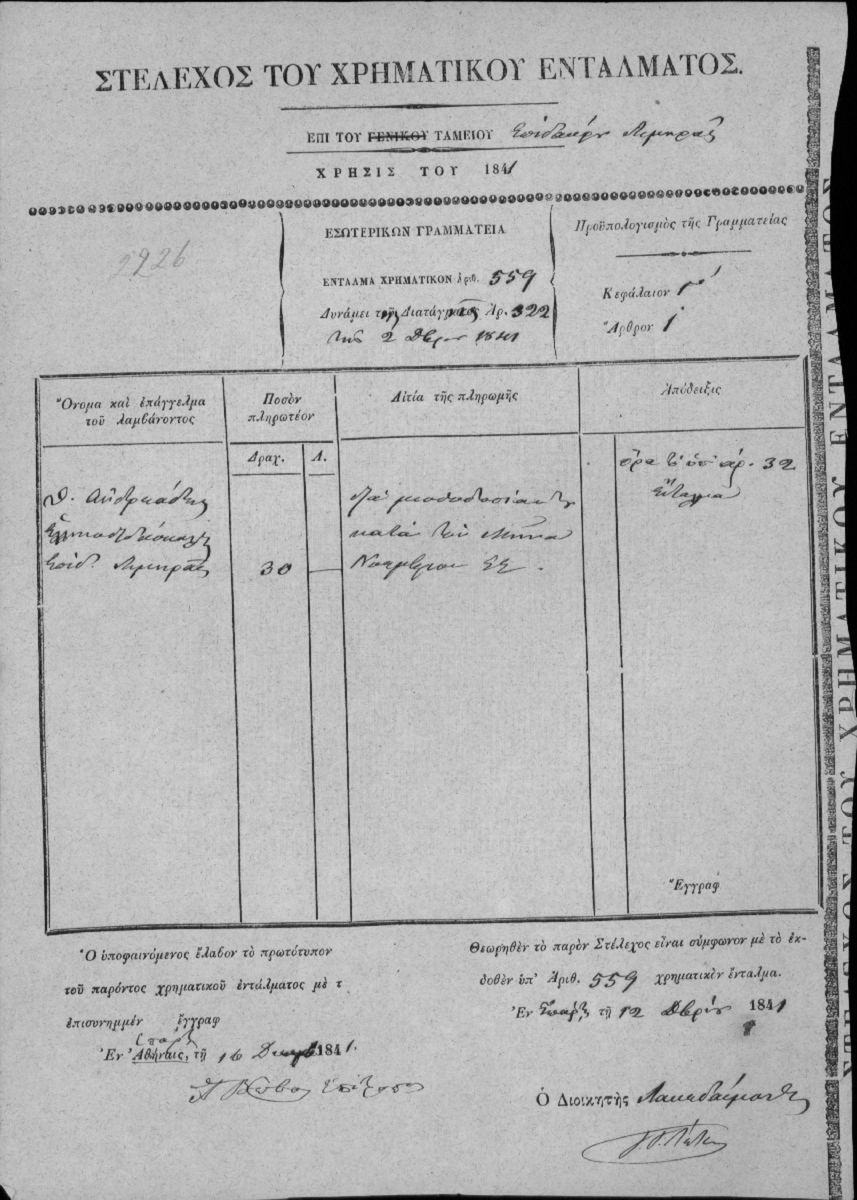 ΣΤΕΛΕΧΟΣ ΤΟΥ ΧΡΗΜΑΤΙΚΟΥ ΕΝΤΑΛΜΑΤΟΣ.
ΕΠΙ ΤΟΥ ΓΕΝΙΚΟΥ ΤΑΜΕΙΟΥ Ἐπιδαύρου Λιμηρᾶς
ΧΡΗΣΙΣ ΤΟΥ 1841
ΕΣΩΤΕΡΙΚΩΝ ΓΡΑΜΜΑΤΕΙΑ
ΕΝΤΑΛΜΑ ΧΡΗΜΑΤΙΚΟΝ ἀριθ. 559
Δυνάμει τῆς Διαταγῆς Ἀρ. 322
τῆς 2 Δβρίου 1841
Προϋπολογισμὸς τῆς Γραμματείας
Κεφάλαιον γ΄
Ἄρθρον
Ὄνομα καὶ ἐπάγγελμα
τοῦ λαμβάνοντος
Ποσὸν
πληρωτέον
Δραχ. Λ.
Αἰτία τῆς πληρωμῆς
Ἀπόδειξις
Ἐπιδ. Λιμηρᾶς
30
διὰ μισθοδοσίαν του
κατὰ τὸν Μῆνα
Νοέμβριον
ὅρα τὸ ὑπ' ἀρ. 32
Ἔνταλμα
Ἔγγραφ
Ὁ ὑποφαινόμενος ἔλαβον τὸ πρωτότυπον
τοῦ παρόντος χρηματικοῦ ἐντάλματος μὲ τ
ἐπισυνημμέν ἔγγραφ
Σπάρτῃ
Ἐν Ἀθήναις, τῇ 16 1841.
Θεωρηθὲν τὸ παρὸν Στέλεχος εἶναι σύμφωνον μὲ τὸ ἐκ-
δοθὲν ὑπ' Ἀριθ. 559 χρηματικὸν ἔνταλμα.
Ἐν Σπάρτῃ τῇ 12 Δβρίου 1841
Ὁ Διοικητὴς Λακεδαίμονος
ΣΤΕΛΕΧΟΣ ΤΟΥ ΧΡΗΜΑΤΙΚΟΥ ΕΝΤΑΛΜΑΤΟΣ